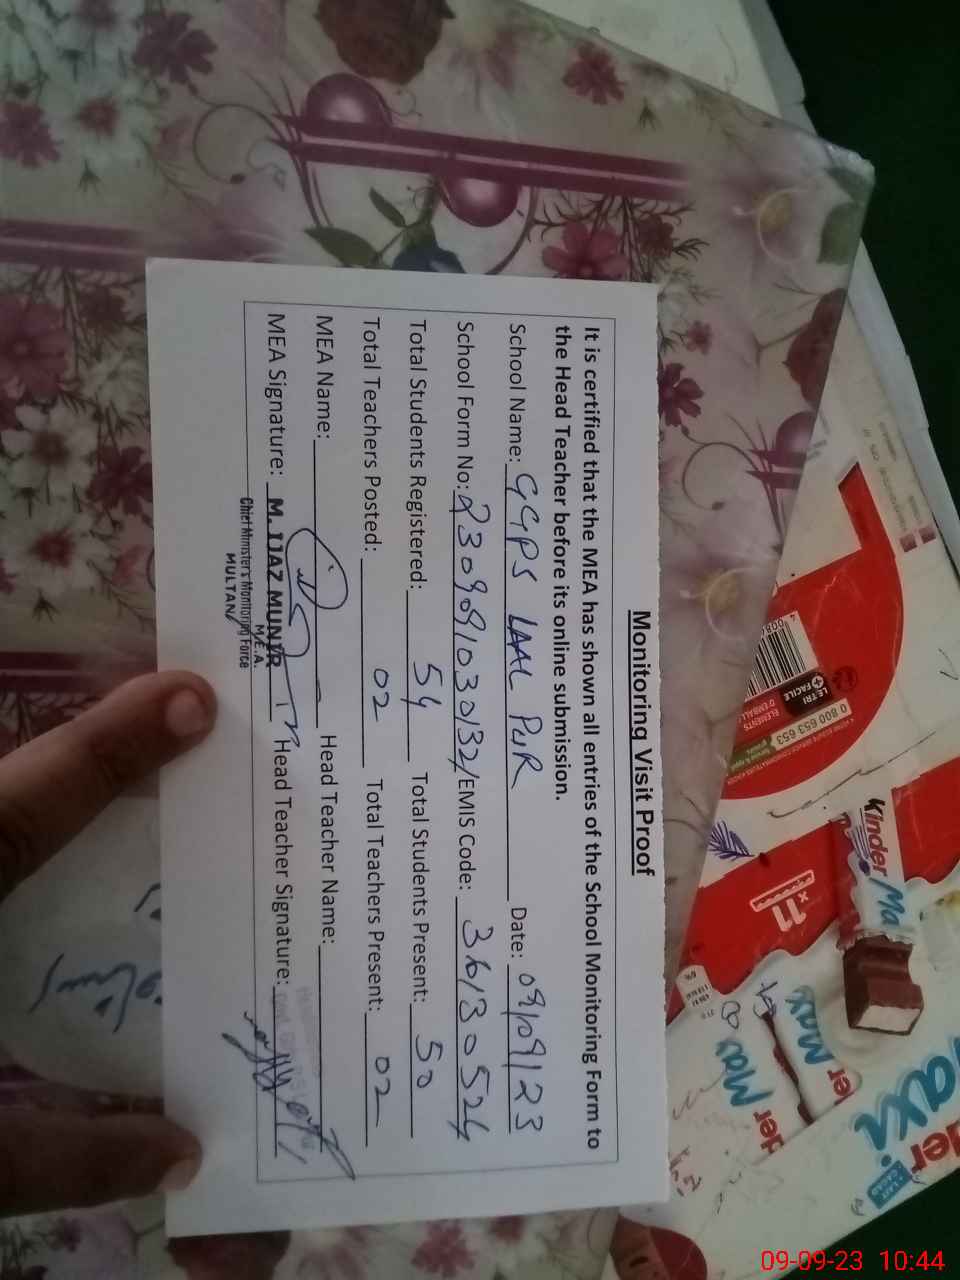 Monitoring Visit Proof
It is certified that the MEA has shown all entries of the School Monitoring Form to
the Head Teacher before its online submission.
School Name: GGPS LAAL PUR Date: 09/09/23
School Form No: 230909103032/EMIS Code: 36130524
Total Students Registered: 54 Total Students Present: 50
Total Teachers Posted: 02 Total Teachers Present: 02
MEA Name: Head Teacher Name:
MEA Signature: M. IJAZ MUNIR Head Teacher Signature:
M.E.A.
Chief Minister's Monitoring Force
MULTAN
Kinder Ma
x11
LE TRI
+ FACILE
ÉLÉMENTS
D'EMBALL
0 800 653 653
der Max
der Max
der
axi
09-09-23 10:44